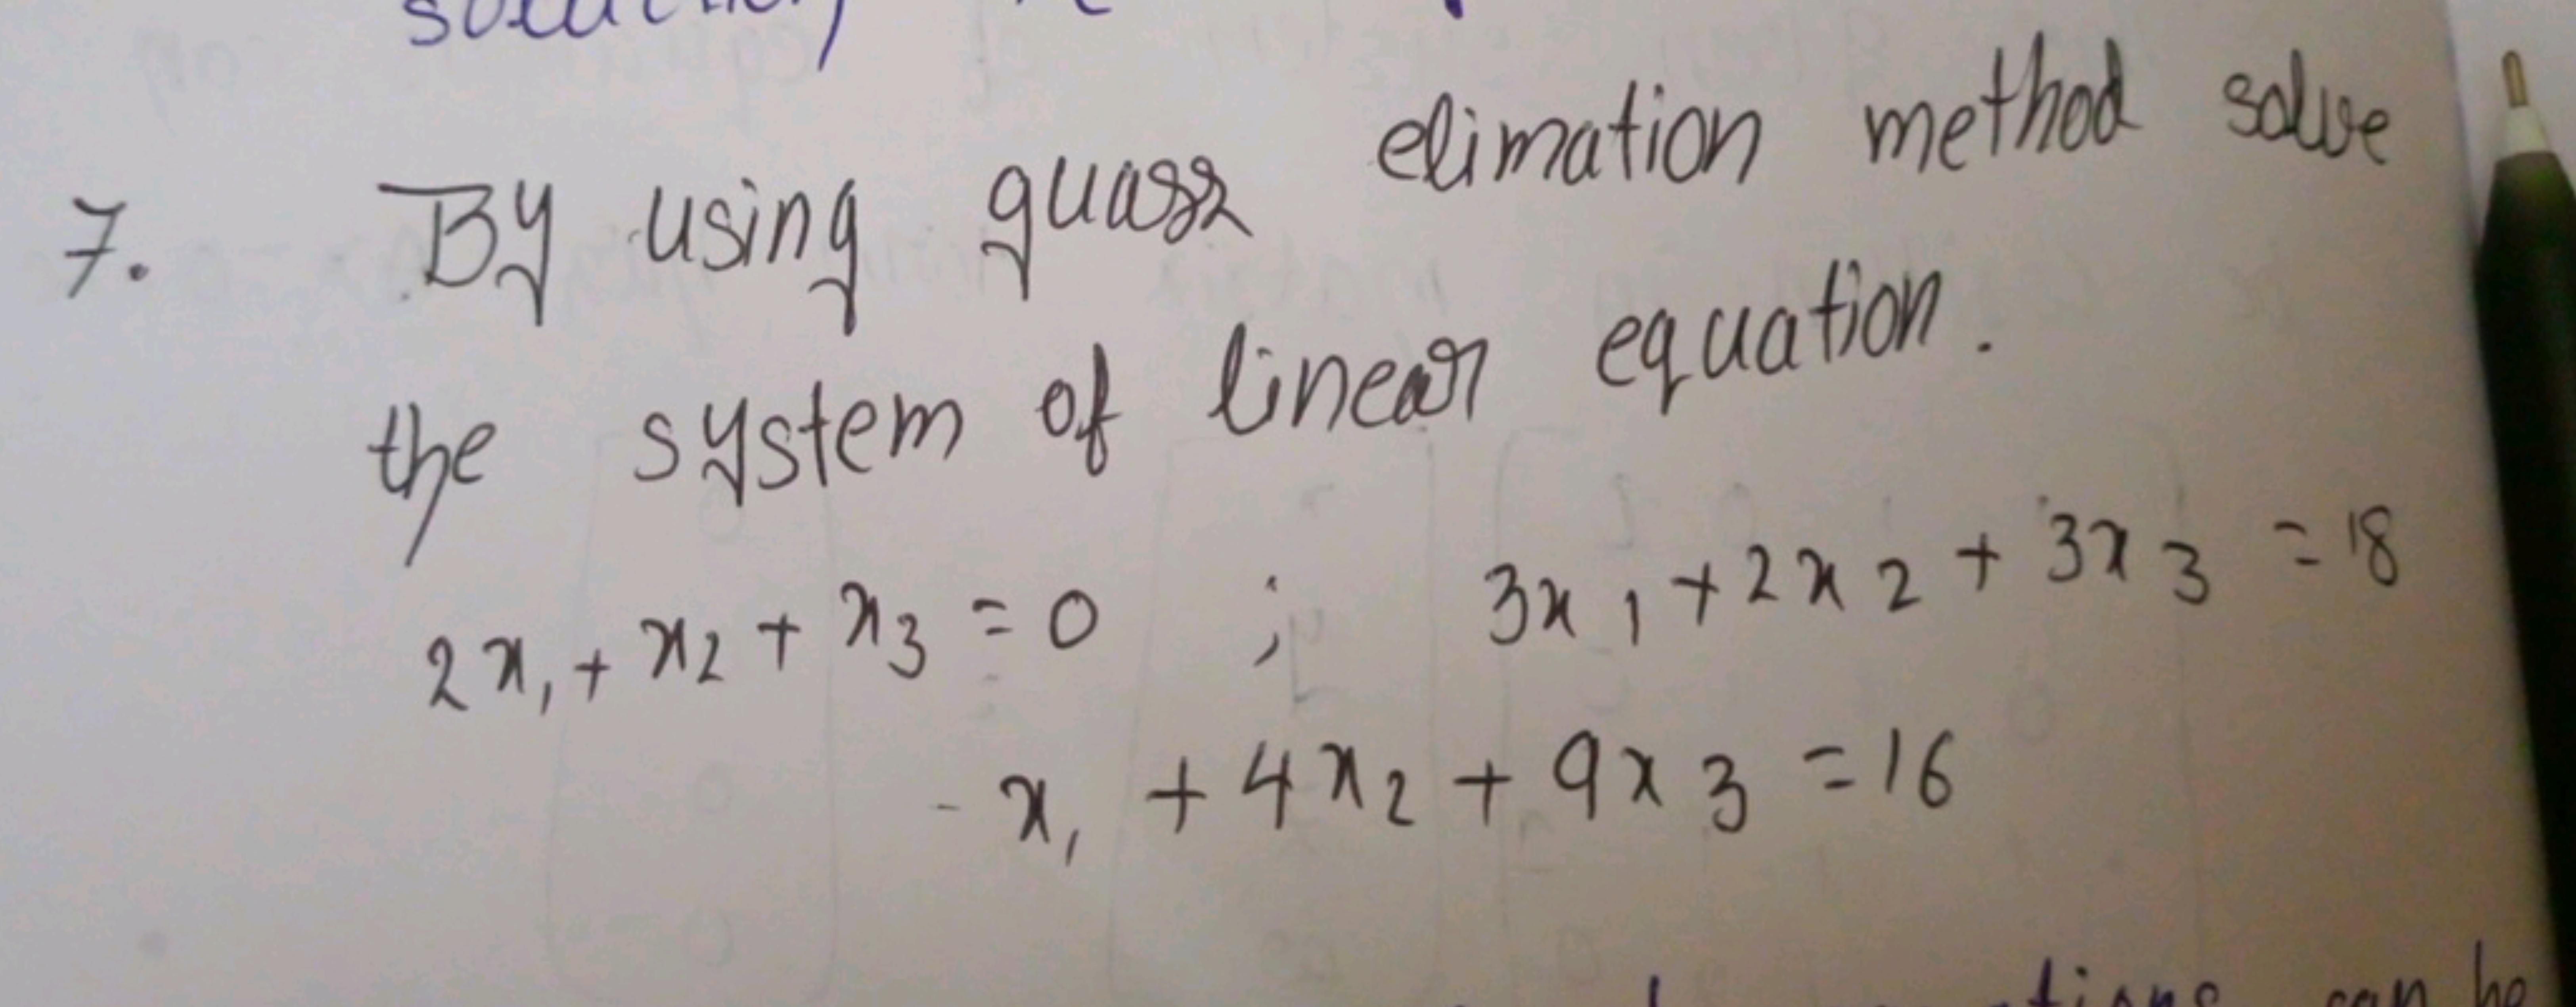 solution
7. By using guass elimation method solve
the system of linear equation.
2x₁ + x₂ + x₃ = 0 ; 3x₁ + 2x₂ + 3x₃ = 18
- x₁ + 4x₂ + 9x₃ = 16
can be